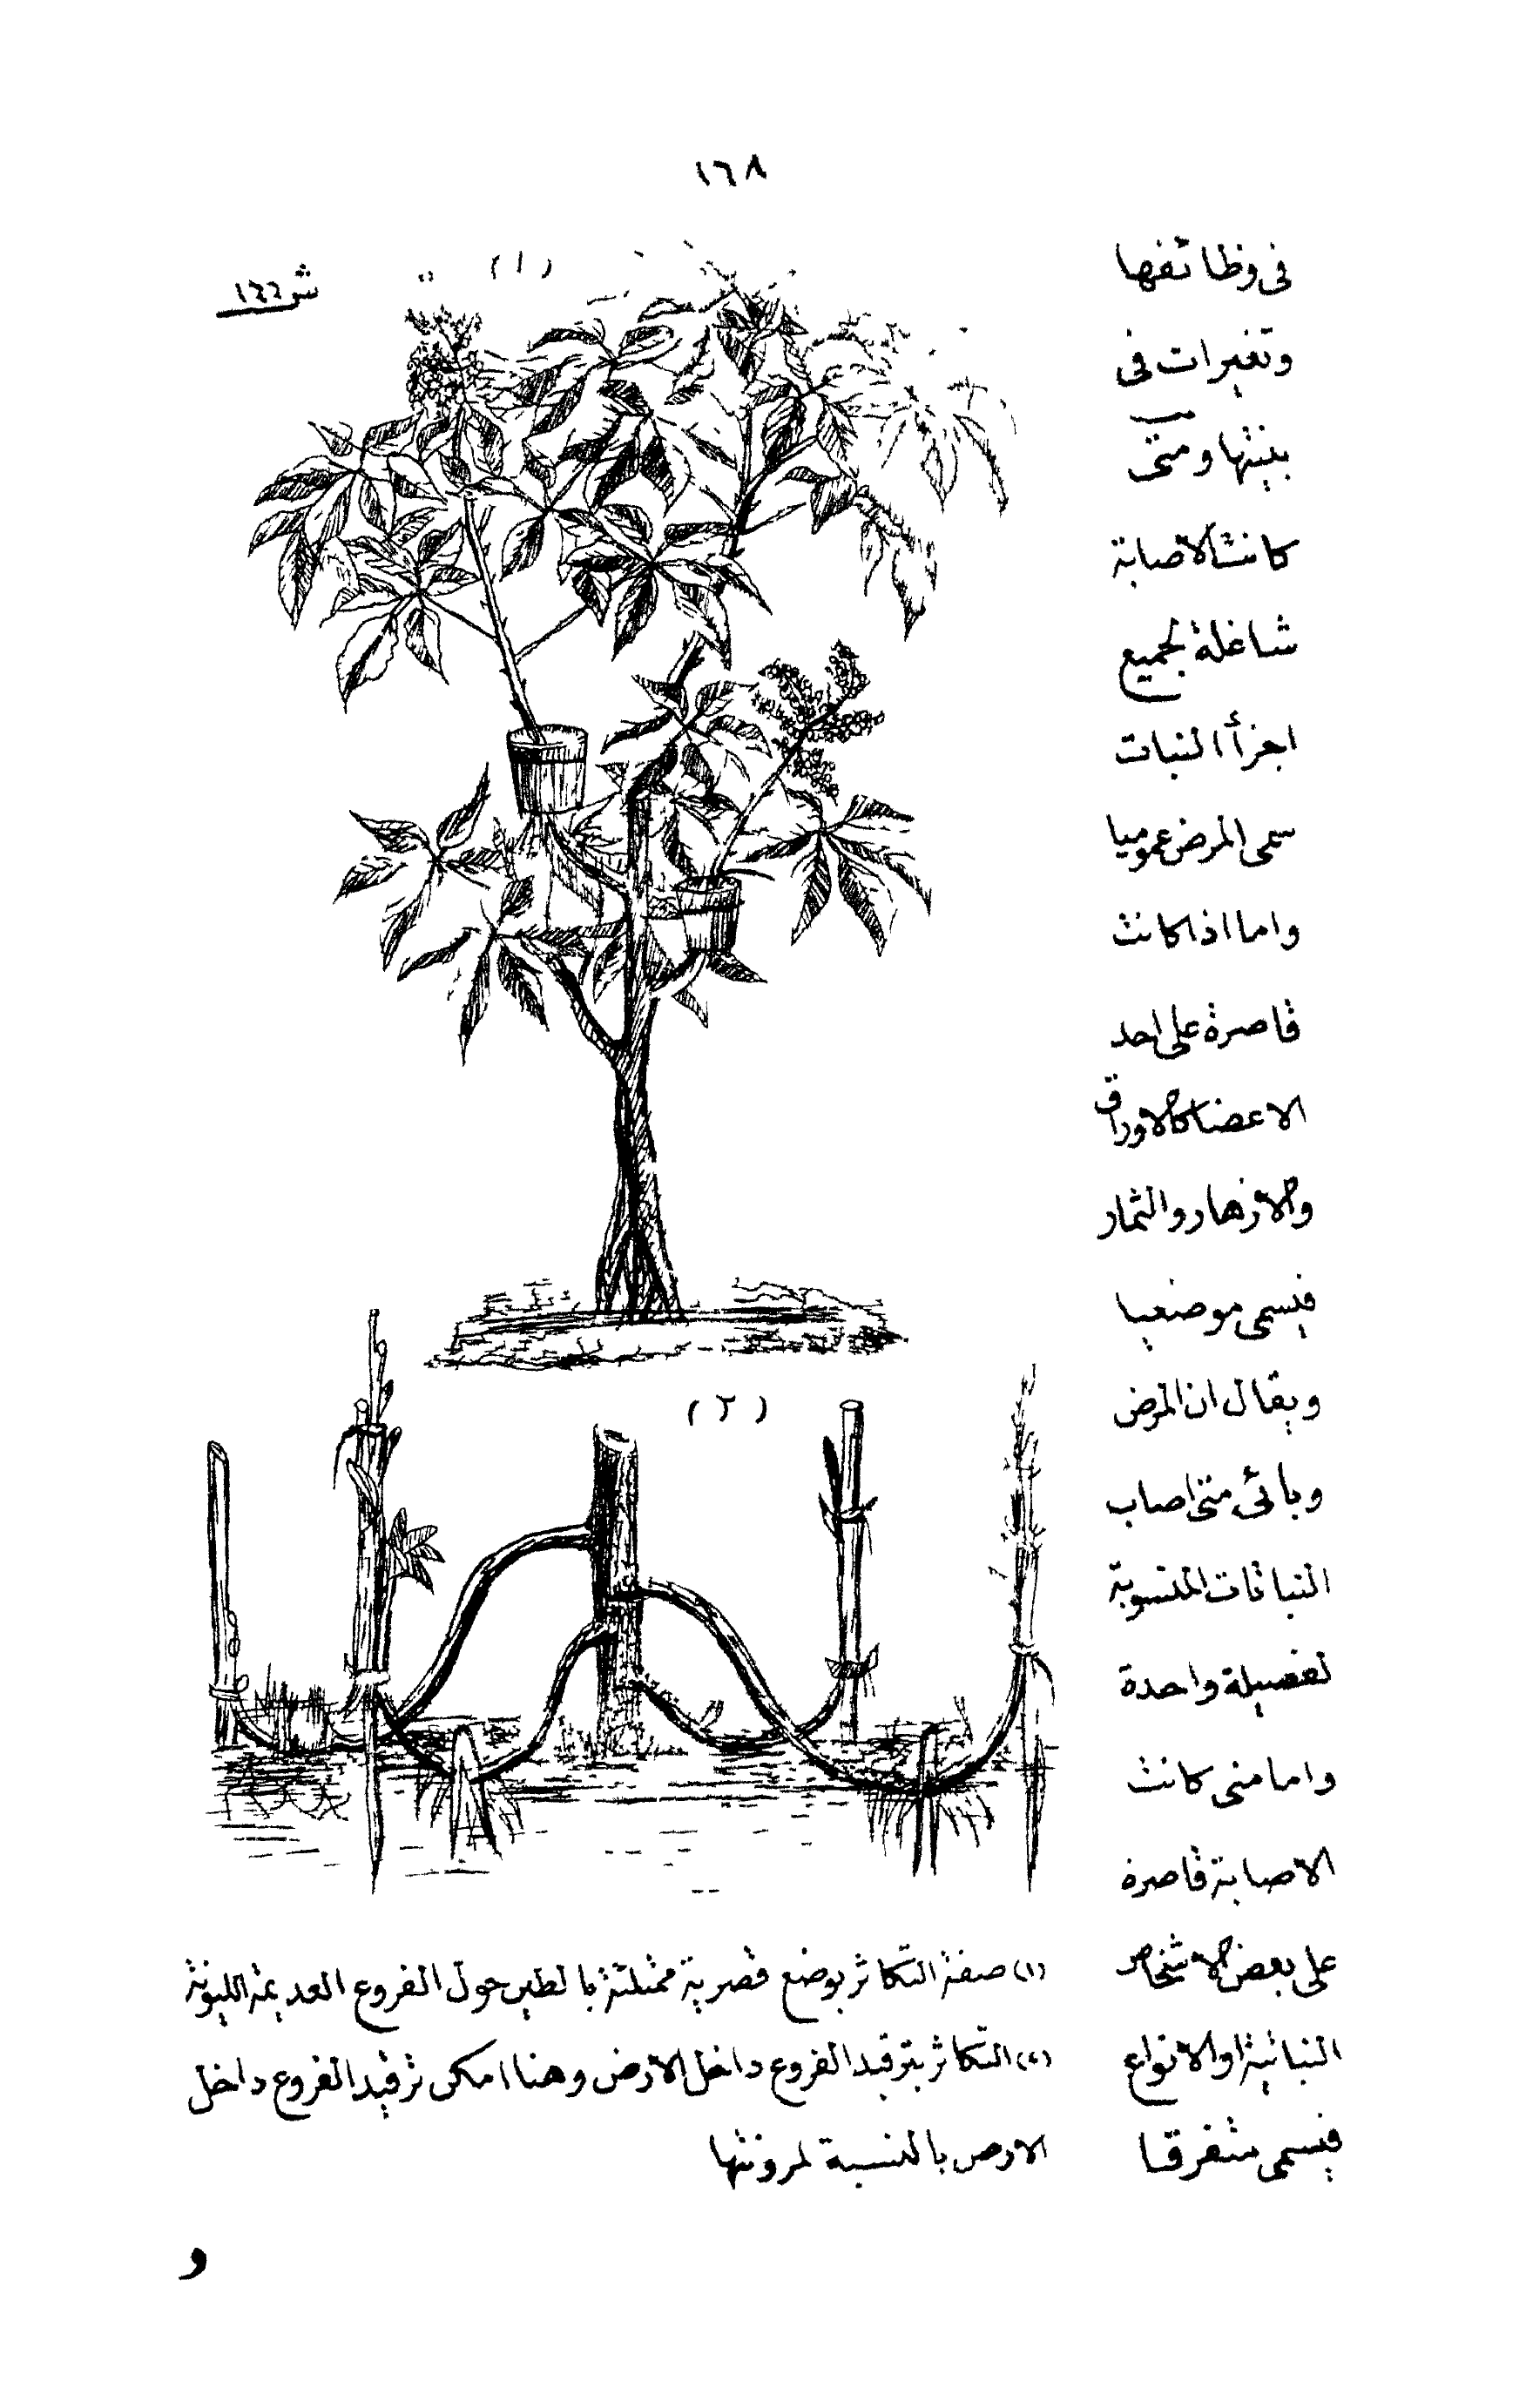 ١٦٨
ش ١٦٦
(١)
فى وظائفها
وتغيرات فى
بنيتها ومتى
كانت الاصابة
شاغلة لجميع
اجزأ النبات
سمى المرض عموميا
واما اذا كانت
قاصرة على احد
الاعضا كالاوراق
والازهار والثمار
فيسمى موضعيا
ويقال ان المرض
وبائى متى اصاب
النباتات المنسوبة
لفصيلة واحدة
واما متى كانت
الاصابة قاصرة
على بعض الاشخاص
النباتية او الانواع
فيسمى متفرقا
(٢)
(١) صفة التكاثر بوضع قصرية ممتلئة بالطين حول الفروع العديمة الليونة
(٢) التكاثر بترقيد الفروع داخل الأرض وهنا امكن ترقيد الفروع داخل
الارض بالنسبة لمرونتها
و